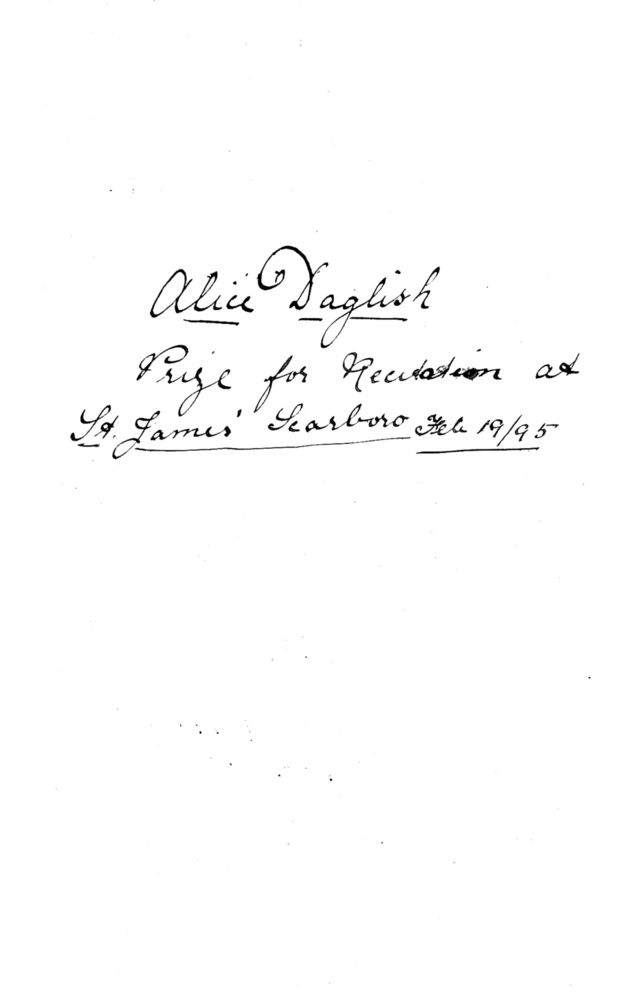 Alice Daglish
Prize for Recitation at
St. James' Scarboro Feb 19/95